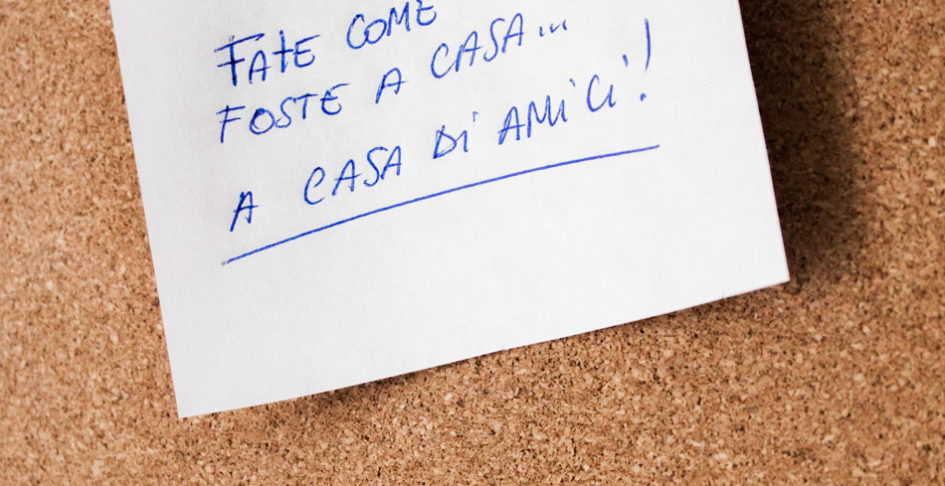 FATE COME
FOSTE A CASA...
A CASA DI AMICI!